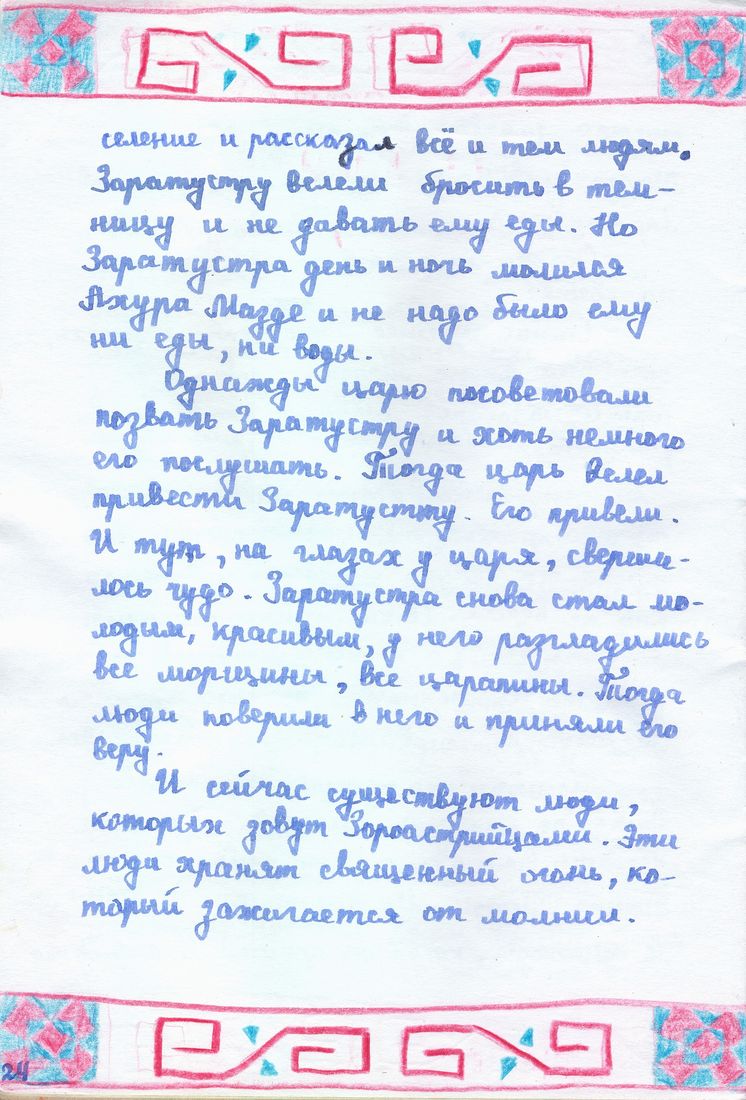 селение и рассказал всё и тем людям.
Заратустру велели бросить в тем-
ницу и не давать ему еды. Но
Заратустра день и ночь молился
Ахура Мазде и не надо было ему
ни еды, ни воды.
Однажды царю посоветовали
позвать Заратустру и хоть немного
его послушать. Тогда царь велел
привести Заратустту. Его привели.
И тут, на глазах у царя, сверши-
лось чудо. Заратустра снова стал мо-
лодым, красивым, у него разгладились
все морщины, все царапины. Тогда
люди поверили в него и приняли его
веру.
И сейчас существуют люди,
которых зовут Зороастрийцами. Эти
люди хранят священный огонь, ко-
торый зажигается от молнии.
24